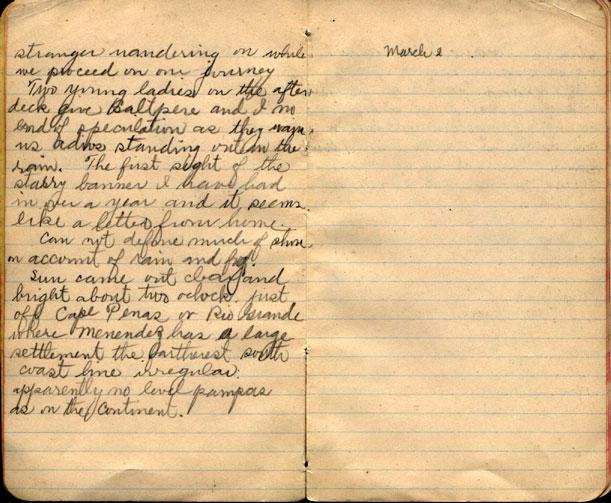 stranger wandering on while
we proceed on our journey
Two young ladies on the after
deck give Baltpere and I no
end of speculation as they wave
us adios standing out in the
rain. The first sight of the
starry banner I have had
in over a year and it seems
like a letter from home.
Can not define much of shore
on account of rain and fog.
Sun came out clear and
bright about two oclock. just
off Cape Penas or Rio Grande
where Menendez has a large
settlement the fartherest south
coast line irregular
apparently no level pampas
as on the Continent.
March 2